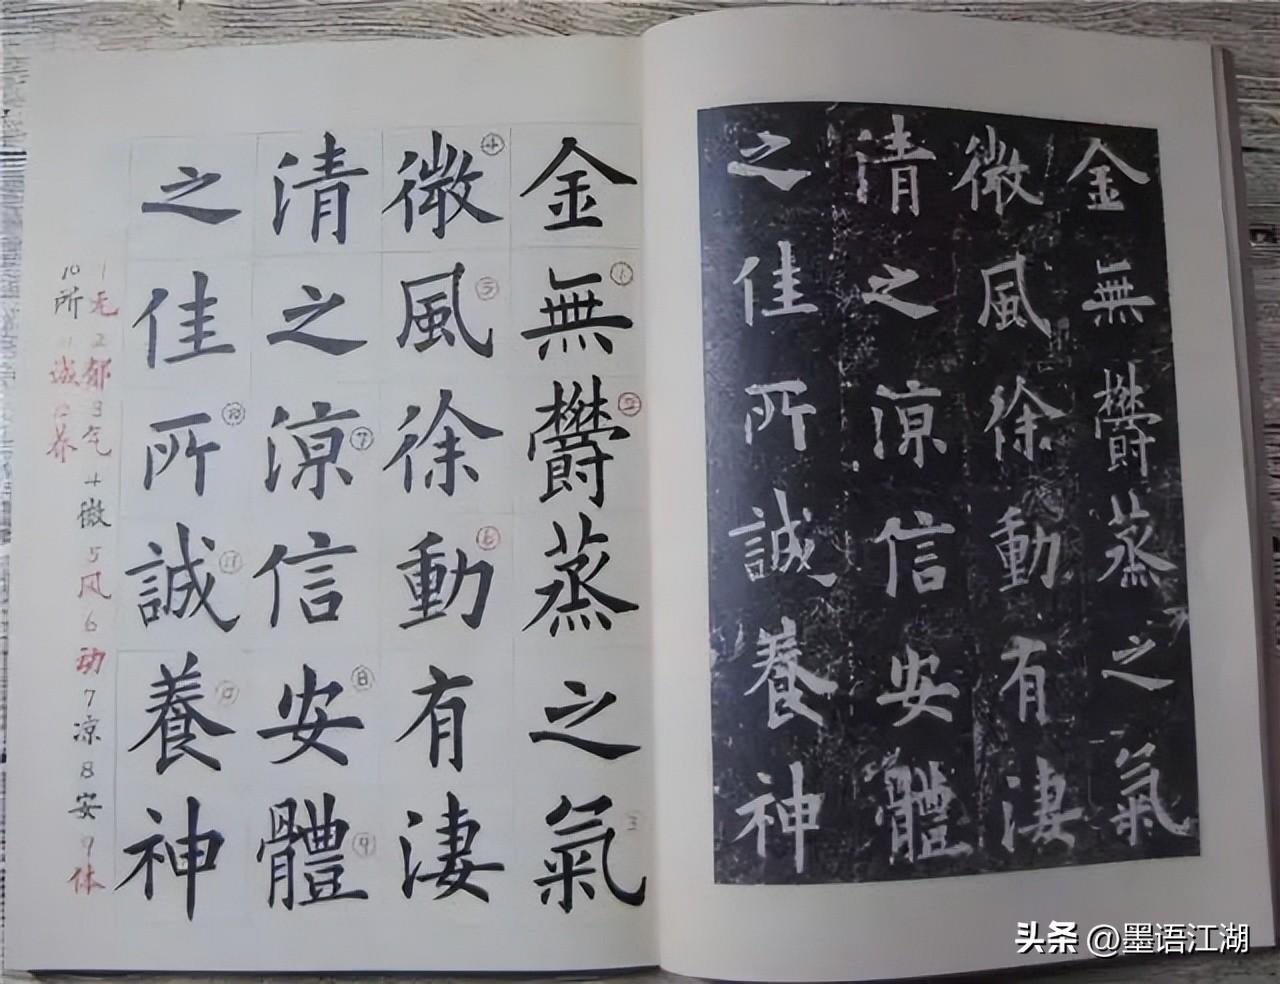 金無鬱蒸之氣
微風徐動有淒
清之涼信安體
之佳所誠養神
1无2郁3气4微5风6动7凉8安9体
10所11诚12养
金無鬱蒸之氣
微風徐動有淒
清之涼信安體
之佳所誠養神
头条 @墨语江湖